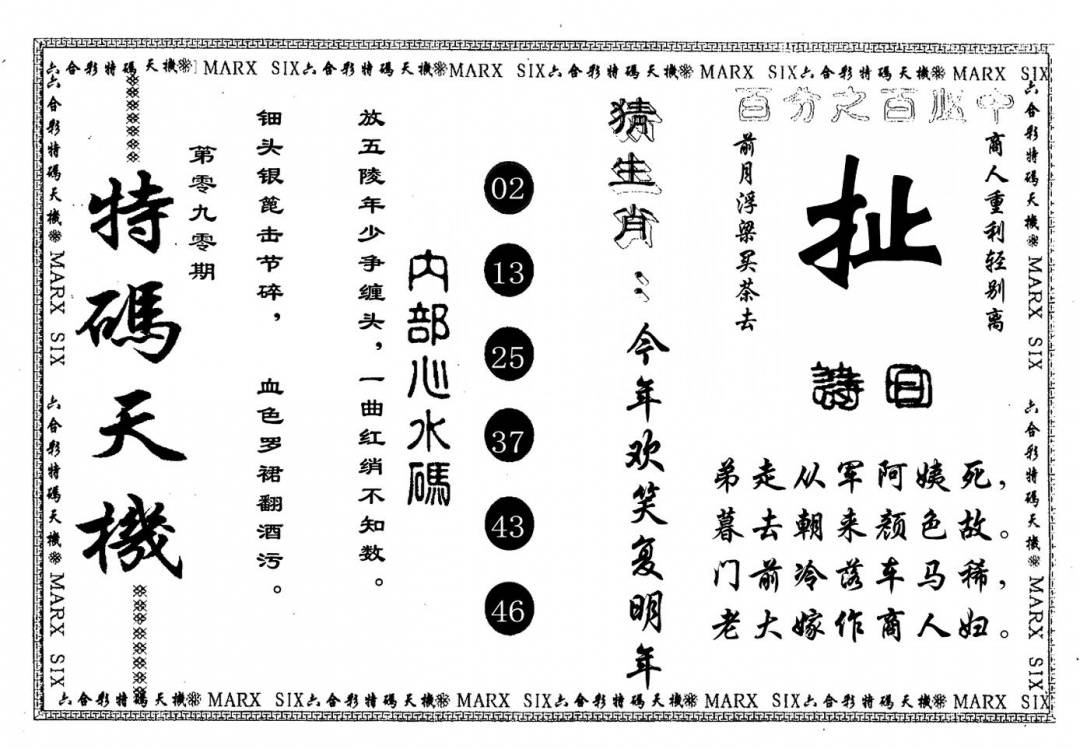 六合彩特碼天機 MARX SIX六合彩特碼天機MARX SIX六合彩特碼天機 MARX SIX六合彩特碼天機 MARX SIX
六合彩特碼天機 MARX SIX 六合彩特碼天機 MARX SIX
特碼天機
第零九零期
钿头银篦击节碎，血色罗裙翻酒污。
放五陵年少争缠头，一曲红绡不知数。
内部心水碼
02
13
25
37
43
46
猜生肖：今年欢笑复明年
百分之百必中
商人重利轻别离
扯
前月浮梁买茶去
詩曰
弟走从军阿姨死，
暮去朝来颜色故。
门前冷落车马稀，
老大嫁作商人妇。
六合彩特碼天機 MARX SIX 六合彩特碼天機 MARX SIX
六合彩特碼天機 MARX SIX六合彩特碼天機 MARX SIX六合彩特碼天機 MARX SIX六合彩特碼天機 MARX SIX